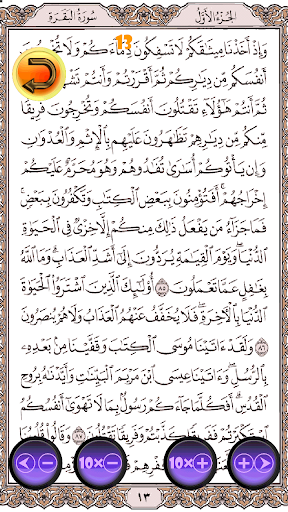 الجزء الأول سورة البقرة
13
وَإِذْ أَخَذْنَا مِيثَٰقَكُمْ لَا تَسْفِكُونَ دِمَآءَكُمْ وَلَا
أَنفُسَكُم مِّن دِيَٰرِكُمْ ثُمَّ أَقْرَرْتُمْ وَأَنتُمْ
ثُمَّ أَنتُمْ هَٰٓؤُلَآءِ تَقْتُلُونَ أَنفُسَكُمْ وَتُخْرِجُونَ فَرِيقًا
مِّنكُم مِّن دِيَٰرِهِمْ تَظَٰهَرُونَ عَلَيْهِم بِٱلْإِثْمِ وَٱلْعُدْوَٰنِ
وَإِن يَأْتُوكُمْ أُسَٰرَىٰ تُفَٰدُوهُمْ وَهُوَ مُحَرَّمٌ عَلَيْكُمْ
إِخْرَاجُهُمْ ۚ أَفَتُؤْمِنُونَ بِبَعْضِ ٱلْكِتَٰبِ وَتَكْفُرُونَ بِبَعْضٍ ۚ
فَمَا جَزَآءُ مَن يَفْعَلُ ذَٰلِكَ مِنكُمْ إِلَّا خِزْىٌ فِى ٱلْحَيَوٰةِ
ٱلدُّنْيَا ۖ وَيَوْمَ ٱلْقِيَٰمَةِ يُرَدُّونَ إِلَىٰٓ أَشَدِّ ٱلْعَذَابِ ۗ وَمَا ٱللَّهُ
بِغَٰفِلٍ عَمَّا تَعْمَلُونَ ٨٥ أُو۟لَٰٓئِكَ ٱلَّذِينَ ٱشْتَرَوُا۟ ٱلْحَيَوٰةَ
ٱلدُّنْيَا بِٱلْءَاخِرَةِ ۖ فَلَا يُخَفَّفُ عَنْهُمُ ٱلْعَذَابُ وَلَا هُمْ يُنصَرُونَ
٨٦ وَلَقَدْ ءَاتَيْنَا مُوسَى ٱلْكِتَٰبَ وَقَفَّيْنَا مِنۢ بَعْدِهِۦ
بِٱلرُّسُلِ ۖ وَءَاتَيْنَا عِيسَى ٱبْنَ مَرْيَمَ ٱلْبَيِّنَٰتِ وَأَيَّدْنَٰهُ بِرُوحِ
ٱلْقُدُسِ ۗ أَفَكُلَّمَا جَآءَكُمْ رَسُولٌۢ بِمَا لَا تَهْوَىٰٓ أَنفُسُكُمُ
ٱسْتَكْبَرْتُمْ فَفَرِيقًا كَذَّبْتُمْ وَفَرِيقًا تَقْتُلُونَ ٨٧ وَقَالُوا۟ قُلُوبُنَا
< - 10× - 10× + + >
١٣